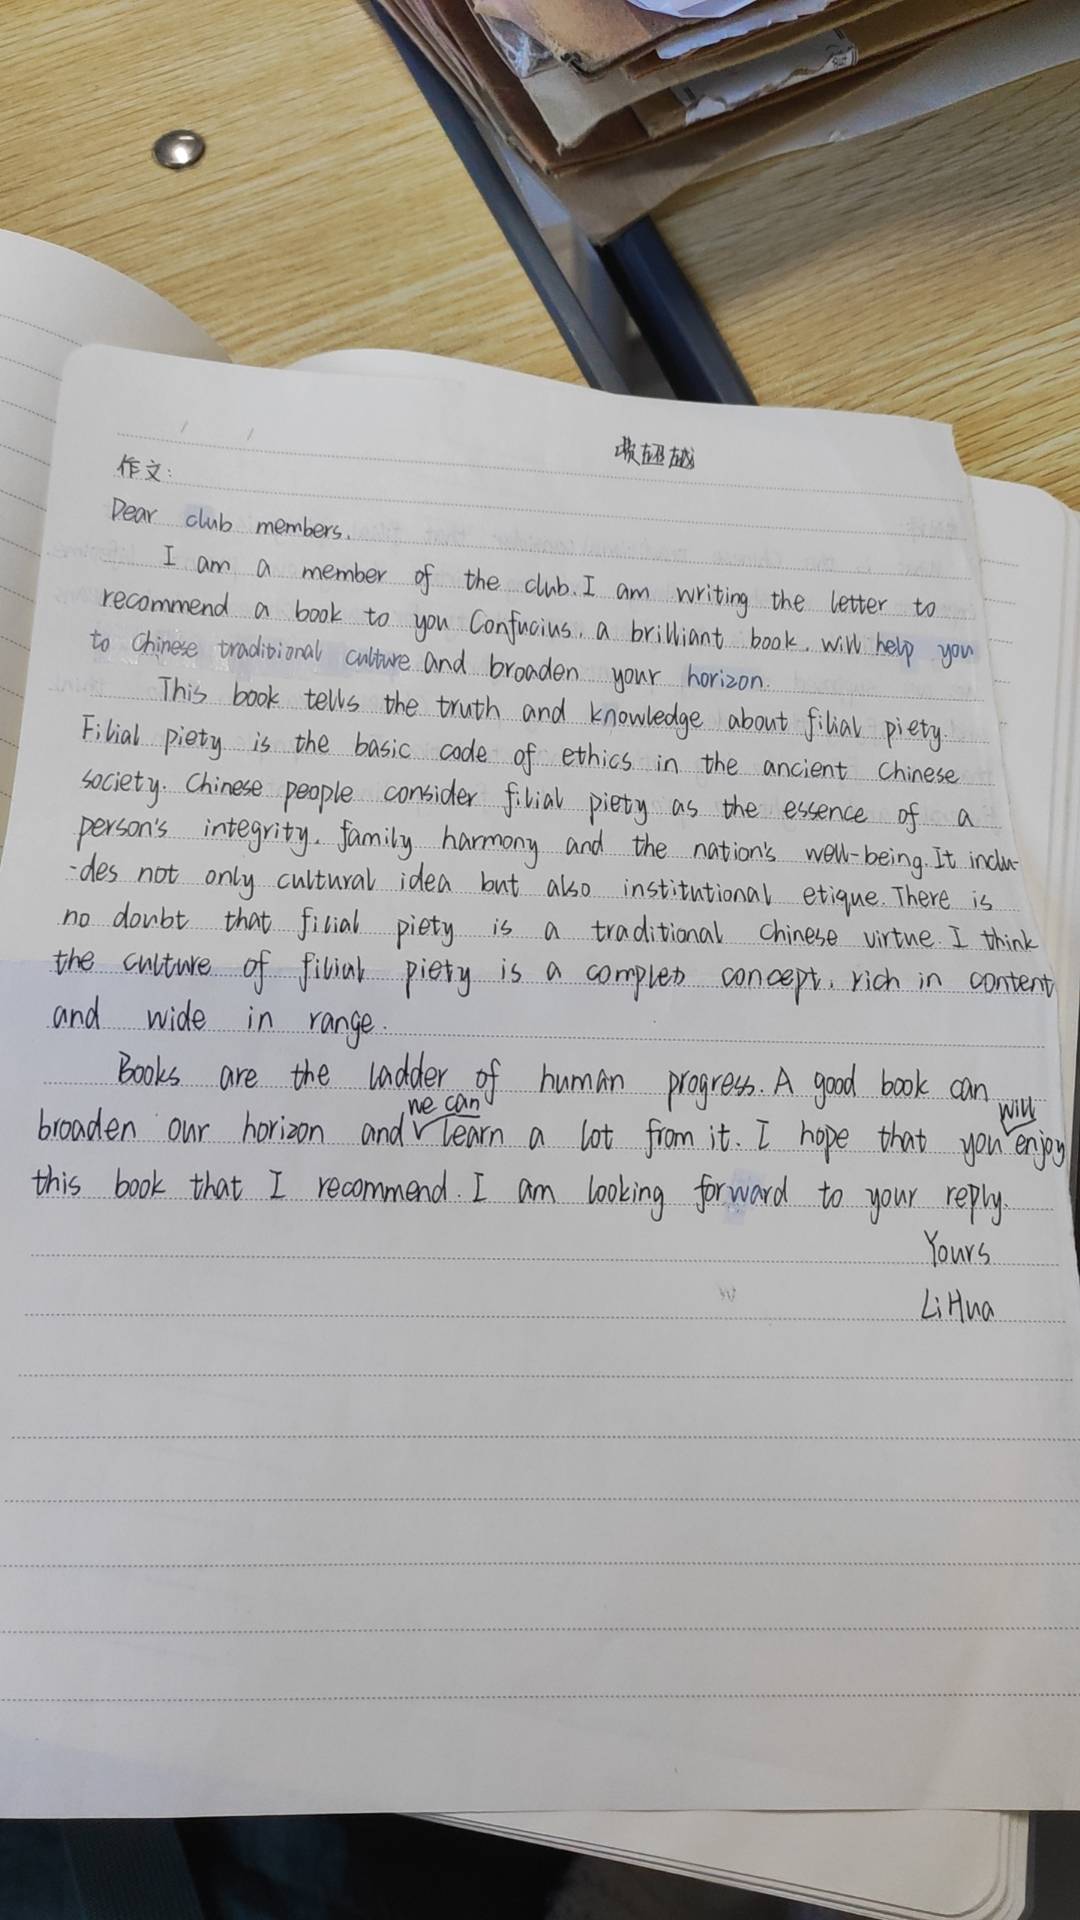 作文:
Dear club members,
I am a member of the club. I am writing the letter to
recommend a book to you Confucius, a brilliant book, will help you
to Chinese traditional culture and broaden your horizon.
This book tells the truth and knowledge about filial piety.
Filial piety is the basic code of ethics in the ancient Chinese
society. Chinese people consider filial piety as the essence of a
person's integrity, family harmony and the nation's well-being. It inclu-
-des not only cultural idea but also institutional etique. There is
no doubt that filial piety is a traditional Chinese virtue. I think
the culture of filial piety is a complex concept, rich in content
and wide in range.
Books are the ladder of human progress. A good book can
broaden our horizon and we can learn a lot from it. I hope that you will enjoy
this book that I recommend. I am looking forward to your reply.
Yours
Li Hua